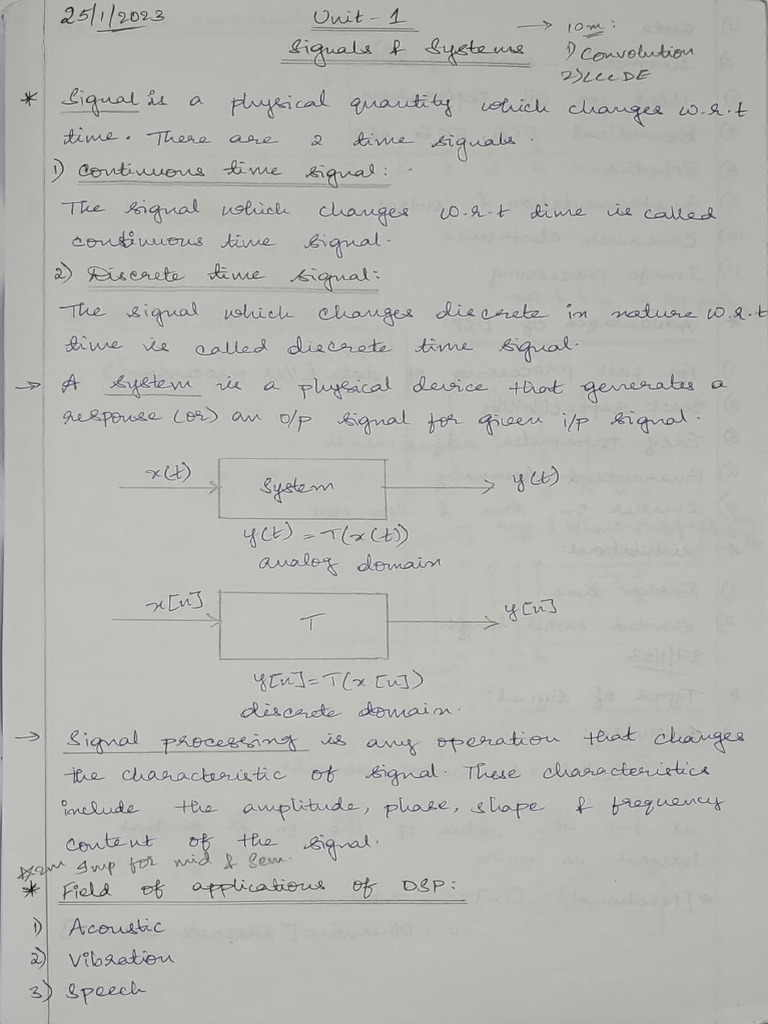 25/1/2023
Unit - 1
Signals & Systems → 10m:
1) Convolution
2) LCCDE
* Signal is a physical quantity which changes w.r.t
time. There are 2 time signals.
1) Continuous time signal:
The signal which changes w.r.t time is called
continuous time signal.
2) Discrete time signal:
The signal which changes discrete in nature w.r.t
time is called discrete time signal.
→ A system is a physical device that generates a
response (or) an o/p signal for given i/p signal.
x(t) System y(t)
y(t) = T(x(t))
analog domain
x[n] T y[n]
y[n] = T(x[n])
discrete domain.
→ Signal processing is any operation that changes
the characteristic of signal. These characteristics
include the amplitude, phase, shape & frequency
content of the signal.
2m Imp for mid & Sem.
* Field of applications of DSP:
1) Acoustic
2) Vibration
3) Speech